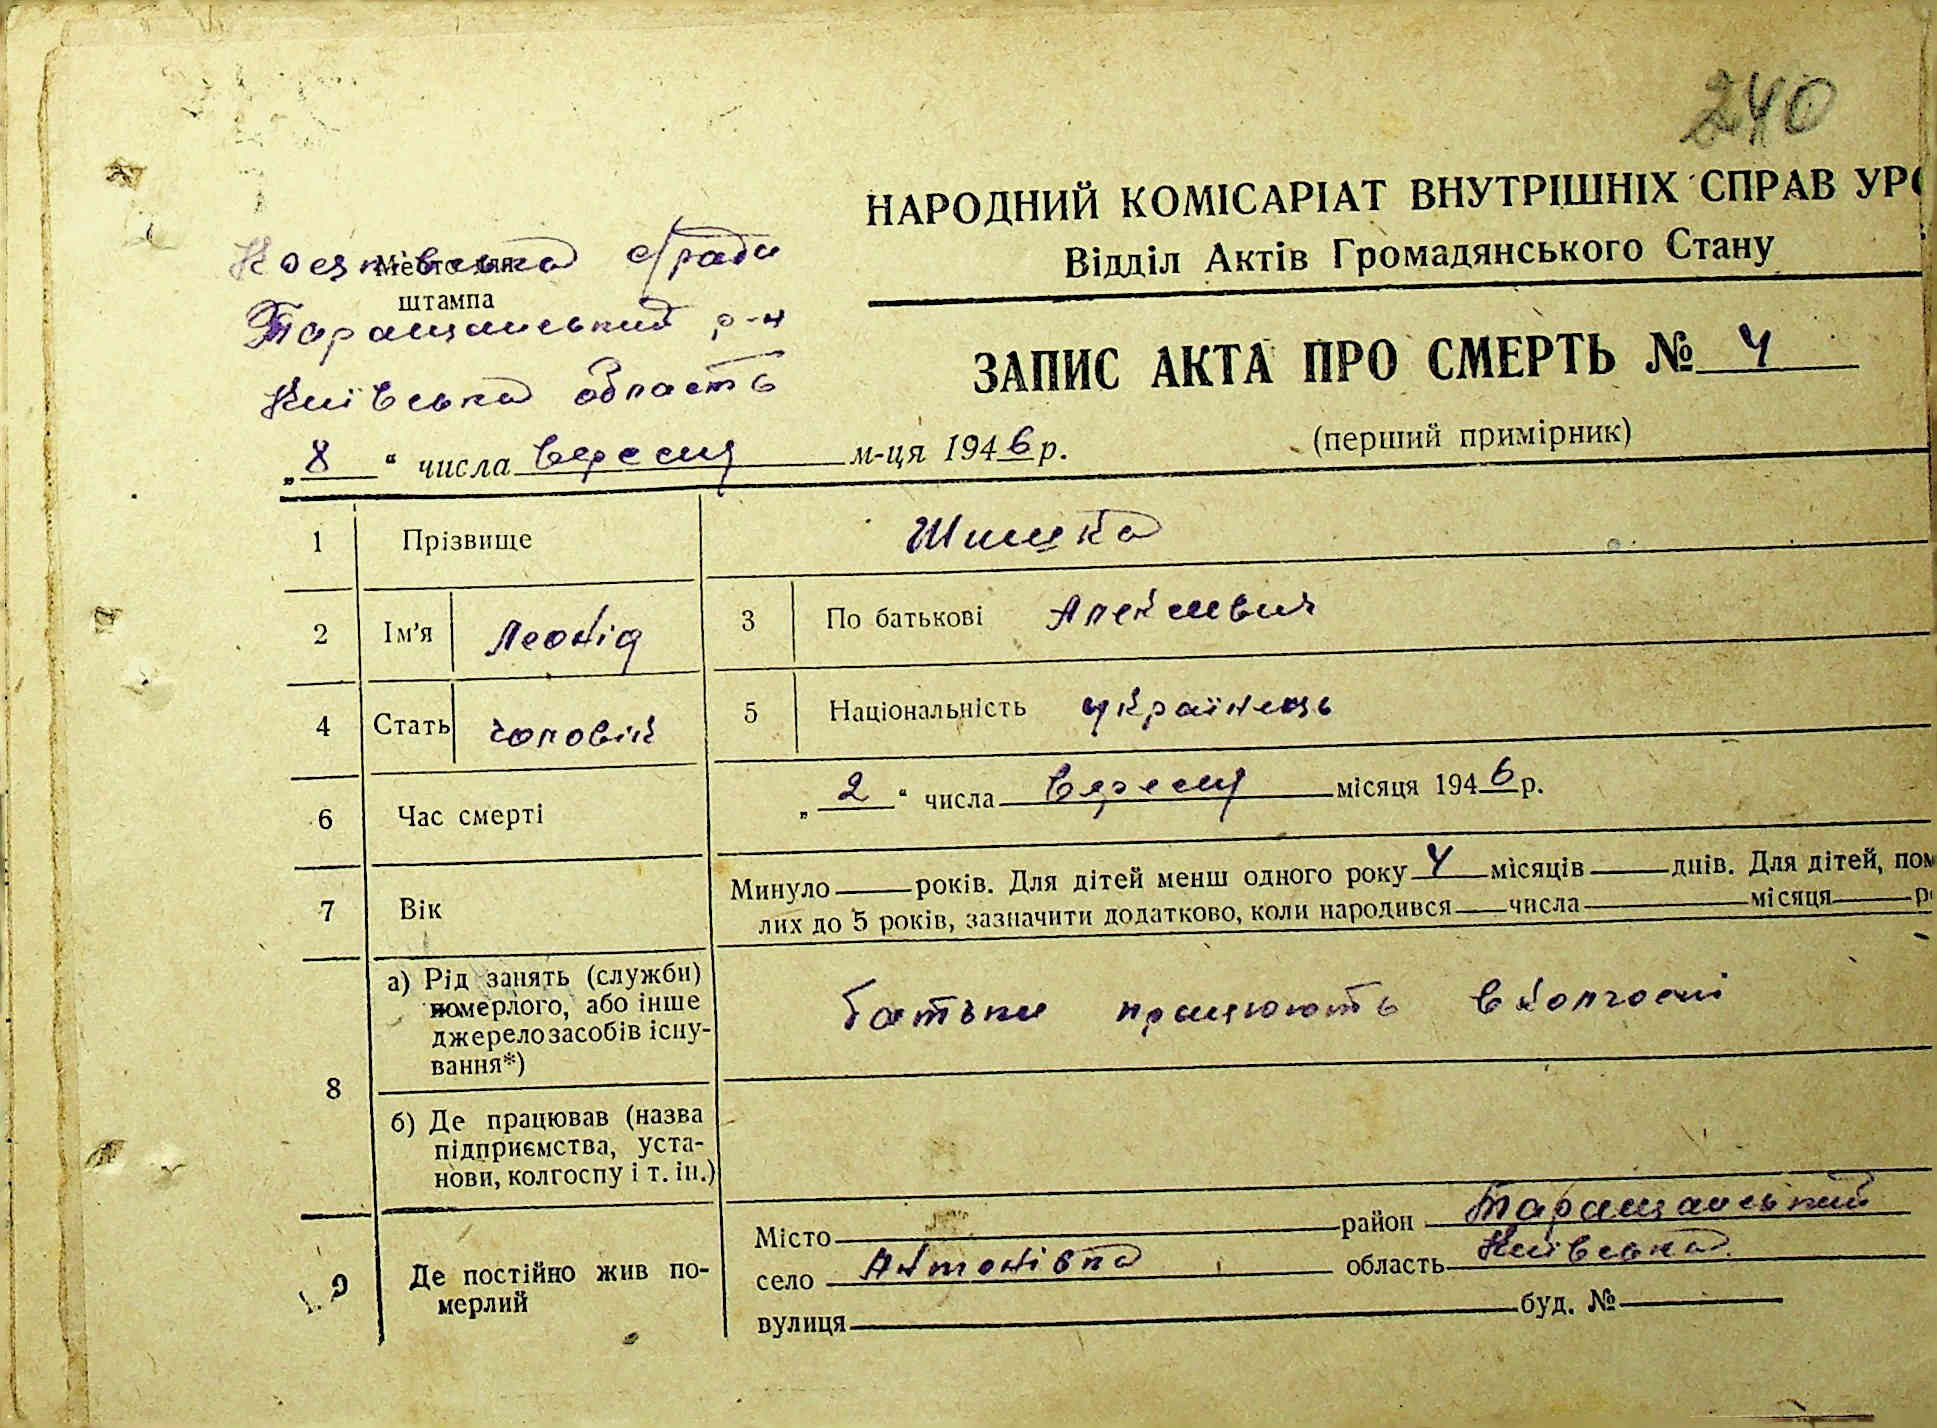 240
НАРОДНИЙ КОМІСАРІАТ ВНУТРІШНІХ СПРАВ УР
Відділ Актів Громадянського Стану
с/рада
штампа
Таращанський р-н
Київська область
ЗАПИС АКТА ПРО СМЕРТЬ № 4
(перший примірник)
„8“ числа вересня м-ця 1946 р.
1 Прізвище Шишка
2 Ім'я Леонід 3 По батькові
4 Стать чоловік 5 Національність українець
6 Час смерті „2“ числа вересня місяця 1946 р.
7 Вік Минуло років. Для дітей менш одного року 4 місяців днів. Для дітей, пом
лих до 5 років, зазначити додатково, коли народився числа місяця р
8 а) Рід занять (служби)
померлого, або інше
джерело засобів існу-
вання*)
батьки працюють в колгоспі
б) Де працював (назва
підприємства, уста-
нови, колгоспу і т. ін.)
9 Де постійно жив по-
мерлий
Місто район Таращанський
село Антонівка область Київська
вулиця буд. №